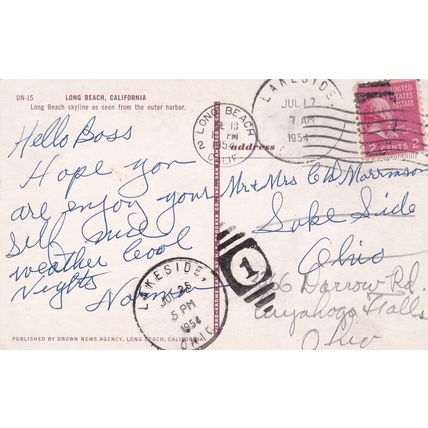 DN-15
LONG BEACH, CALIFORNIA
Long Beach skyline as seen from the outer harbor.
Hello Boss
Hope you
are enjoy your
self nice
weather Cool
Nights
PUBLISHED BY DROWN NEWS AGENCY, LONG BEACH, CALIFORNIA
LONG BEACH
2
PM
1954
CALIF.
LAKESIDE,
JUL 17
7 AM
1954
UNITED STATES
POSTAGE
2 CENTS 2
address
Mr & Mrs C W Morrison
Lake Side
Ohio
1
LAKESIDE,
JUL 26
5 PM
1954
OHIO
Darrow Rd.
Cuyahoga Falls
Ohio